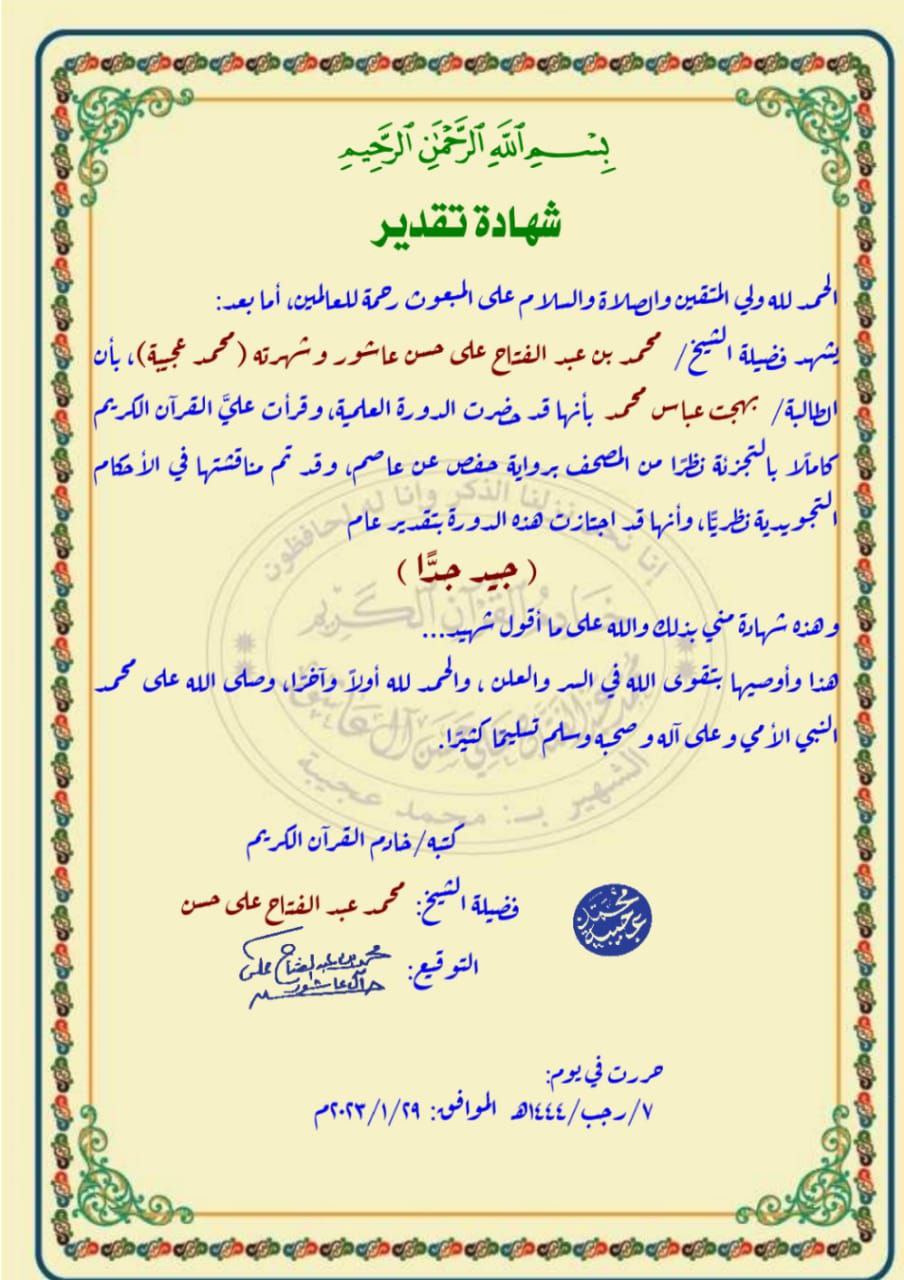 بِسْمِ ٱللَّهِ ٱلرَّحْمَٰنِ ٱلرَّحِيمِ
شهادة تقدير
الحمد لله ولي المتقين والصلاة والسلام على المبعوث رحمة للعالمين، أما بعد:
يشهد فضيلة الشيخ/ محمد بن عبد الفتاح على حسن عاشور وشهرته (محمد عجيبة)، بأن
الطالبة/ بهجت عباس محمد بأنها قد حضرت الدورة العلمية، وقرأت عليَّ القرآن الكريم
كاملًا بالتجزئة نظرًا من المصحف برواية حفص عن عاصم، وقد تم مناقشتها في الأحكام
التجويدية نظريًّا، وأنها قد اجتازت هذه الدورة بتقدير عام
( جيد جدًّا )
وهذه شهادة مني بذلك والله على ما أقول شهيد...
هذا وأوصيها بتقوى الله في السر والعلن ، والحمد لله أولاً وآخرًا، وصلى الله على محمد
النبي الأمي وعلى آله وصحبه وسلم تسليمًا كثيرًا.
إنا نحن نزلنا الذكر وإنا له لحافظون
خادم القرآن الكريم
محمد عبد الفتاح علي حسن آل عاشور
الشهير بـ: محمد عجيبة
كتبه/خادم القرآن الكريم
فضيلة الشيخ: محمد عبد الفتاح على حسن
محمد عجيبة
التوقيع: محمد بن عبد الفتاح على
آل عاشور
حررت في يوم:
٧/رجب/١٤٤٤هـ الموافق: ٢٠٢٣/١/٢٩م